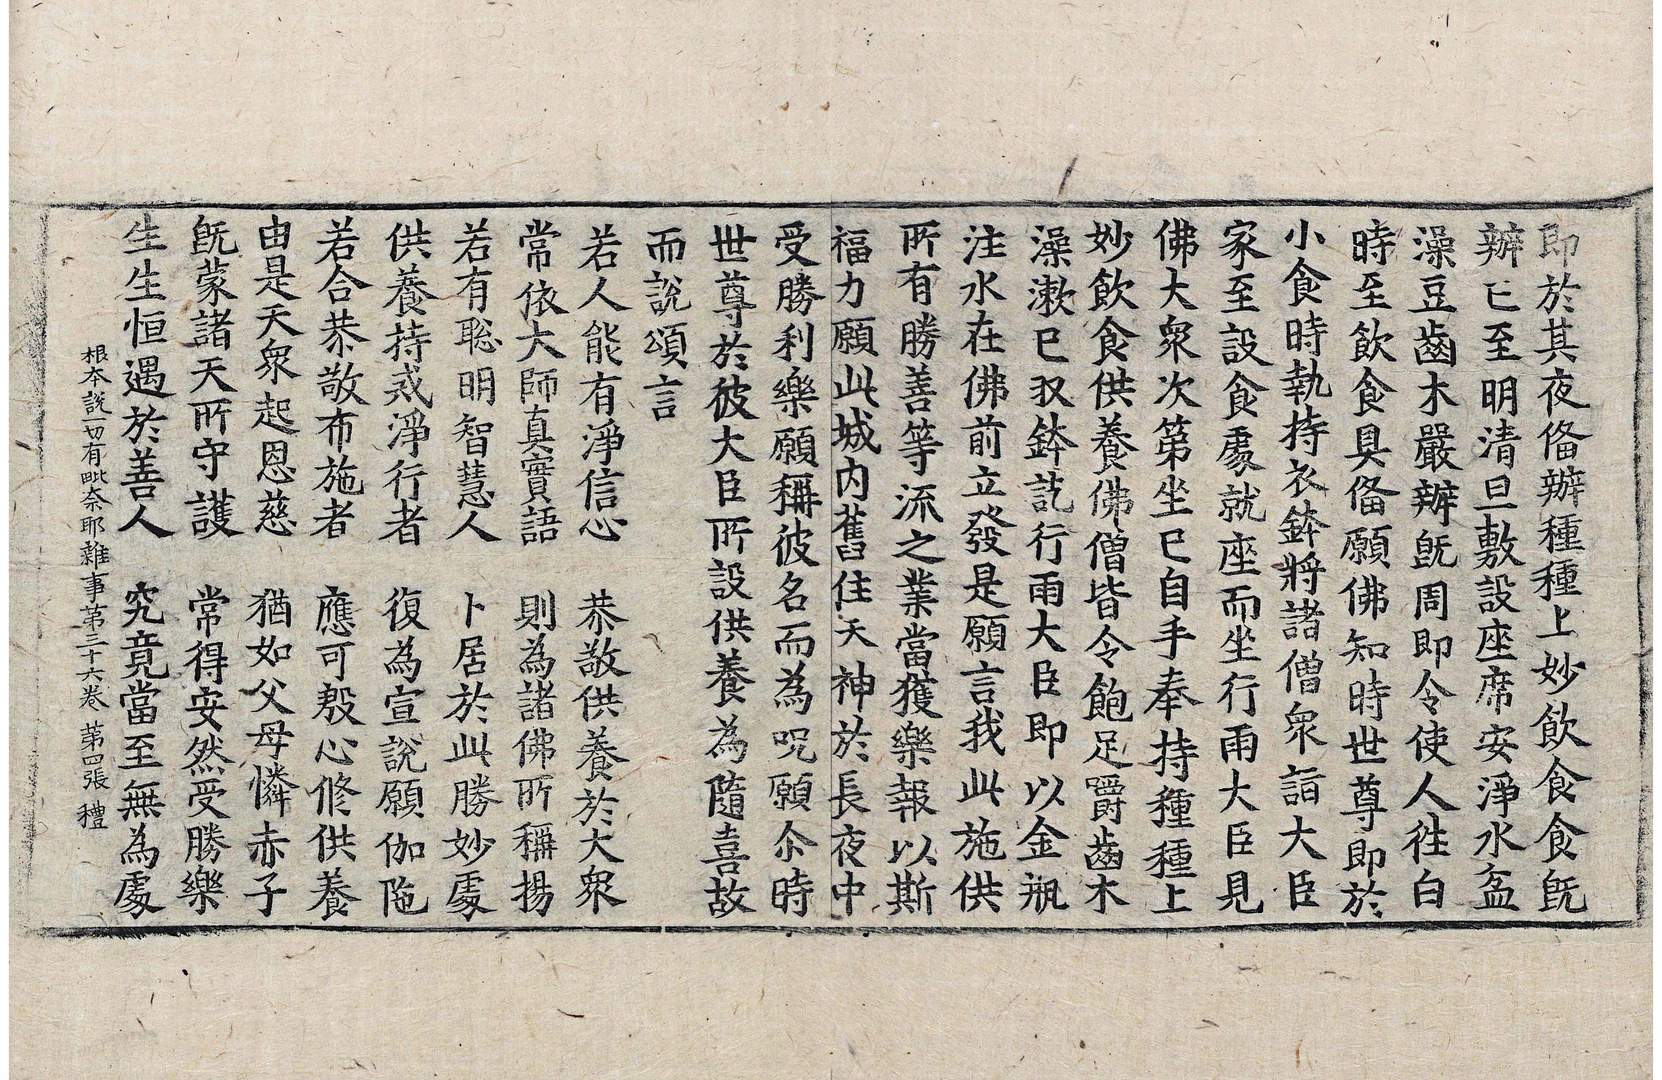 即於其夜俻辦種種上妙飲食食旣
辦已至明清旦敷設座席安淨水盆
澡豆齒木嚴辦旣周即令使人徃白
時至飲食具俻願佛知時世尊即於
小食時執持衣鉢將諸僧衆詣大臣
家至設食䖏就座而坐行雨大臣見
佛大衆次第坐已自手奉持種種上
妙飲食供養佛僧皆令飽足嚼齒木
澡漱已収鉢訖行雨大臣即以金瓶
注水在佛前立發是願言我此施供
所有勝善等流之業當獲樂報以斯
福力願此城内舊住天神於長夜中
受勝利樂願稱彼名而為呪願尒時
世尊於彼大臣所設供養為隨喜故
而說頌言
若人能有淨信心　恭敬供養於大衆
常依大師真實語　則為諸佛所稱揚
若有聡明智慧人　卜居於此勝妙䖏
供養持戒淨行者　復為宣說願伽陁
若合恭敬布施者　應可慇心修供養
由是天衆起恩慈　猶如父母憐赤子
旣蒙諸天所守護　常得安然受勝樂
生生恒遇於善人　究竟當至無為䖏
根本說一切有毗奈耶雜事第三十六卷　第四張　禮